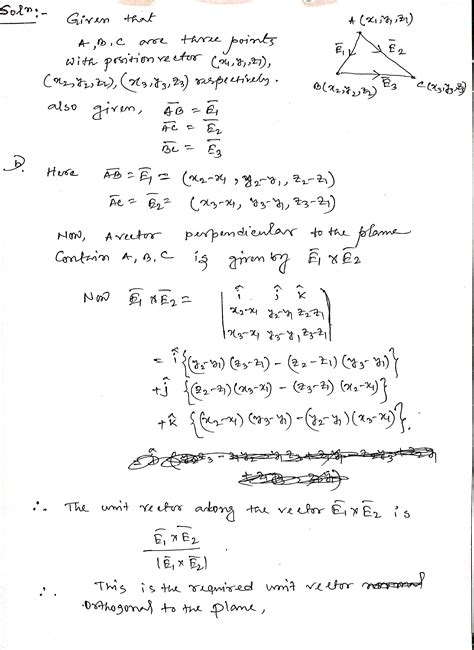 Soln:- Given that
A, B, C are three points
with position vector (x₁, y₁, z₁),
(x₂, y₂, z₂), (x₃, y₃, z₃) respectively.
A (x₁, y₁, z₁)
E̅₁ E̅₂
B(x₂, y₂, z₂) E̅₃ C(x₃, y₃, z₃)
also given, A̅B̅ = E̅₁
A̅C̅ = E̅₂
B̅C̅ = E̅₃
Here A̅B̅ = E̅₁ = (x₂-x₁, y₂-y₁, z₂-z₁)
A̅C̅ = E̅₂ = (x₃-x₁, y₃-y₁, z₃-z₁)
Now, A vector perpendicular to the plane
Contain A, B, C is given by E̅₁ × E̅₂
Now E̅₁ × E̅₂ = | î ĵ k̂ |
| x₂-x₁ y₂-y₁ z₂-z₁ |
| x₃-x₁ y₃-y₁ z₃-z₁ |
= î {(y₂-y₁)(z₃-z₁) - (z₂-z₁)(y₃-y₁)}
+ĵ {(z₂-z₁)(x₃-x₁) - (z₃-z₁)(x₂-x₁)}
+k̂ {(x₂-x₁)(y₃-y₁) - (y₂-y₁)(x₃-x₁)}.
∴ The unit vector along the vector E̅₁ × E̅₂ is
E̅₁ × E̅₂
|E̅₁ × E̅₂|
∴ This is the required unit vector
orthogonal to the plane,